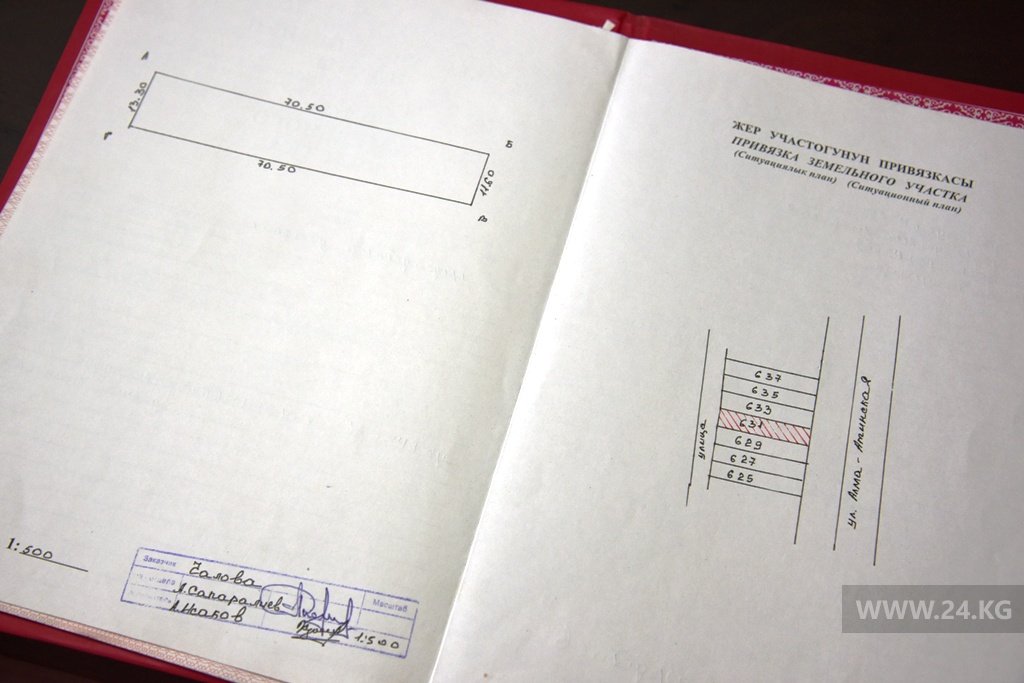 А
13.30
70.50
Б
Г
70.50
11.50
В
1:500
Заказчик Чалова
отдела А.Сапаралиев
Масштаб
А.Жаков
1:500
ЖЕР УЧАСТОГУНУН ПРИВЯЗКАСЫ
ПРИВЯЗКА ЗЕМЕЛЬНОГО УЧАСТКА
(Ситуациялык план) (Ситуационный план)
637
635
633
631
629
627
625
улица
ул. Алма-Атинская
WWW.24.KG